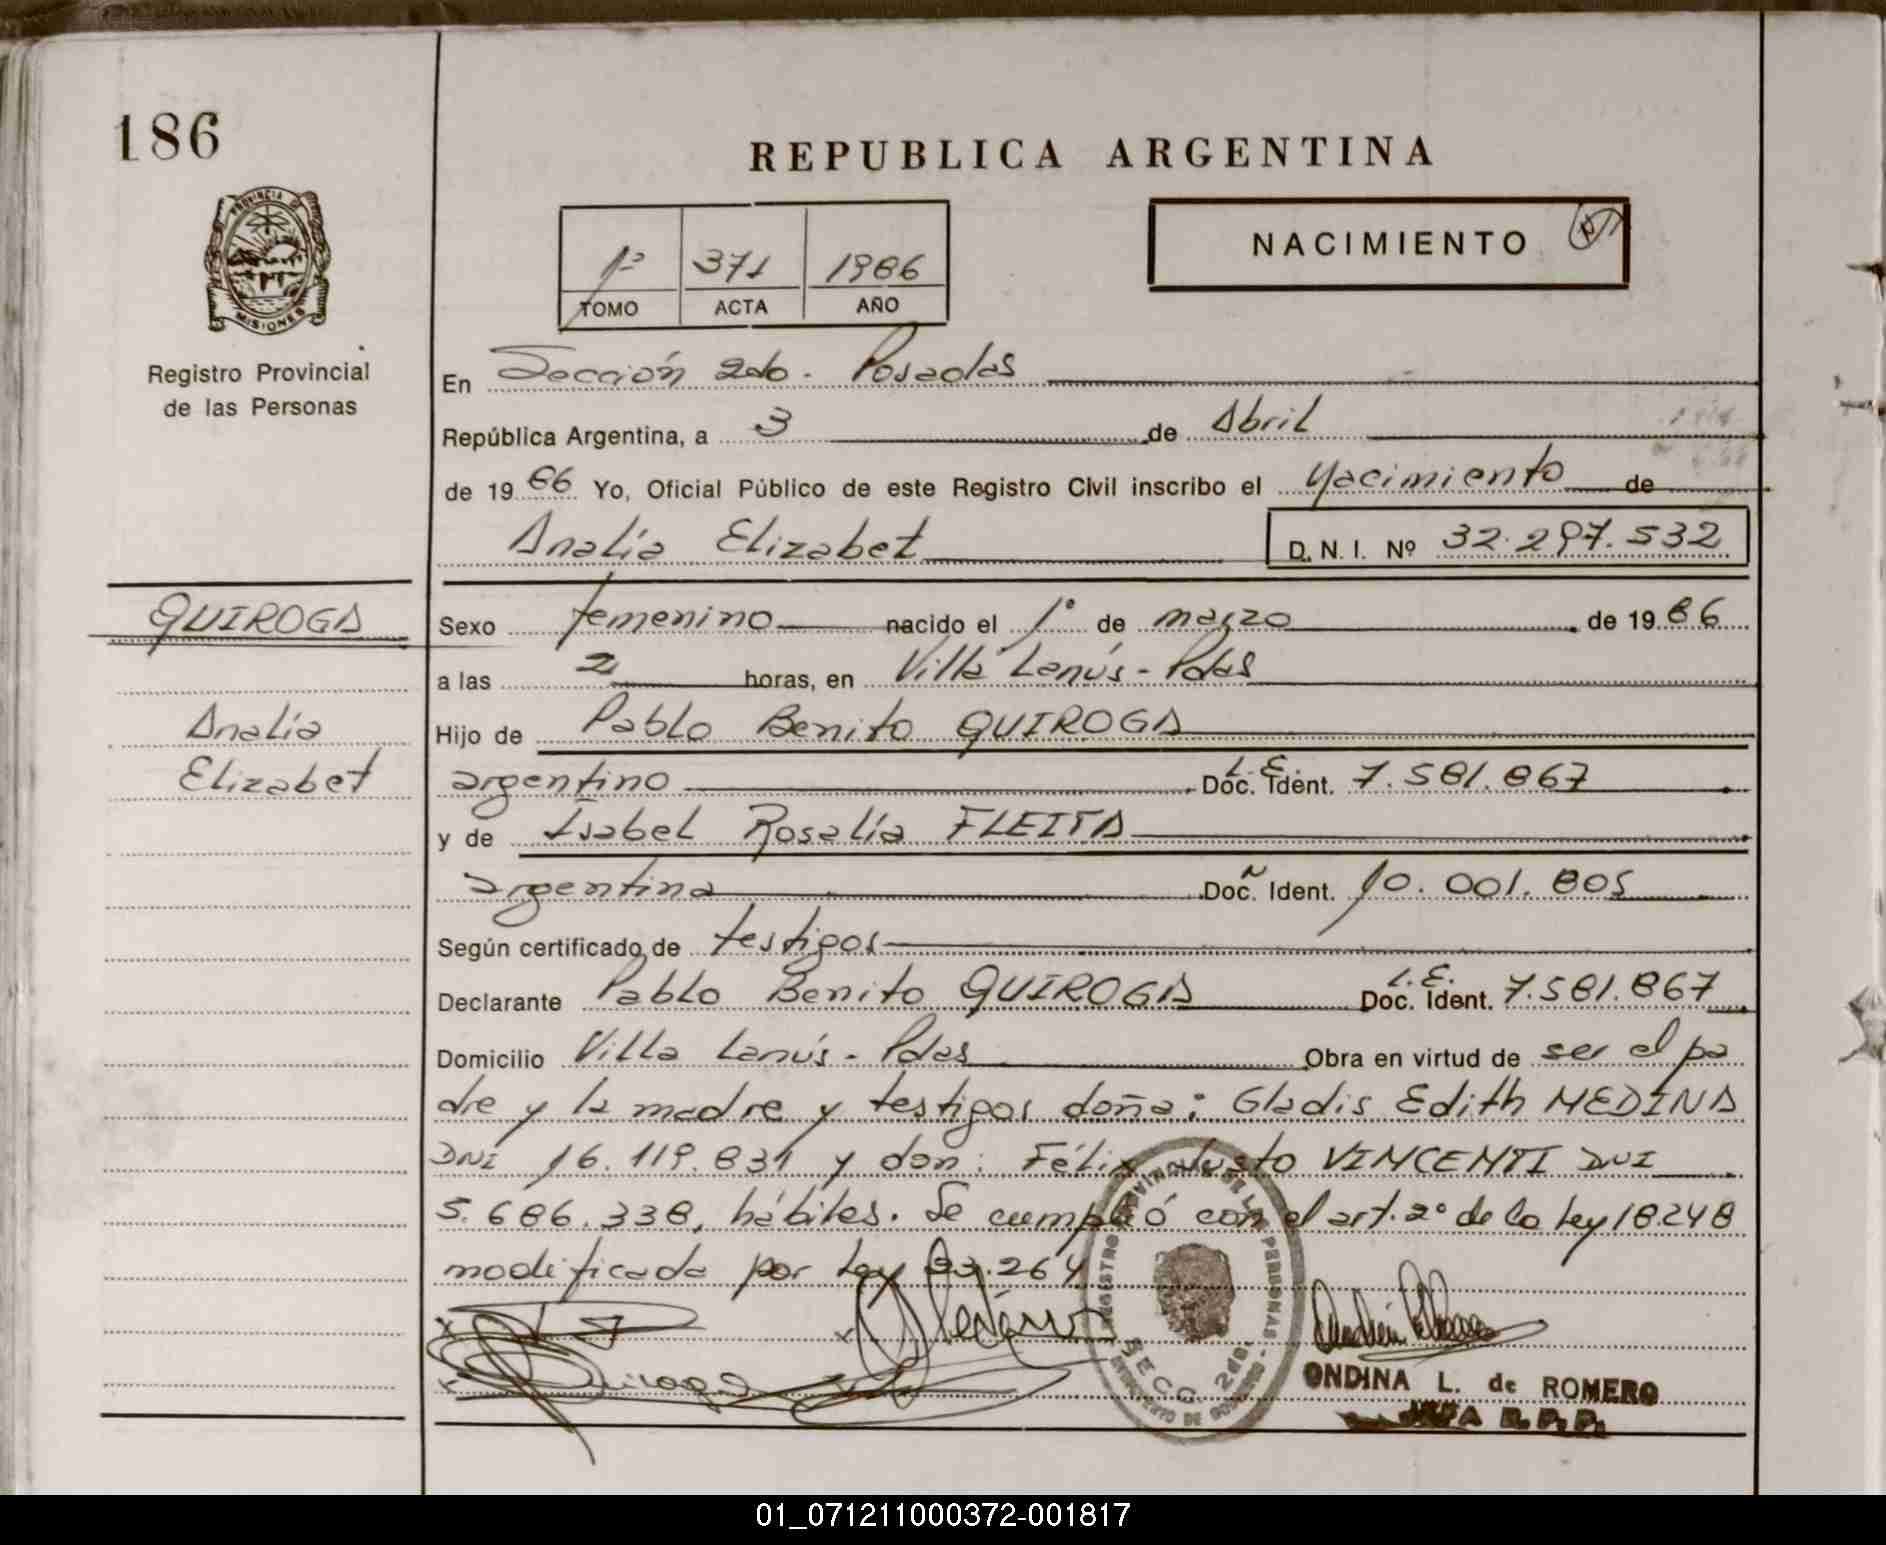 186
REPUBLICA ARGENTINA
PROVINCIA DE
MISIONES
Registro Provincial
de las Personas
1º 371 1986
TOMO ACTA AÑO
NACIMIENTO
En Sección 2da. Posadas
República Argentina, a 3 de Abril
de 19 86 Yo, Oficial Público de este Registro Civil inscribo el Nacimiento de
Analía Elizabet D. N. I. Nº 32.297.532
QUIROGA
Analía
Elizabet
Sexo femenino nacido el 1º de marzo de 19 86
a las 2 horas, en Villa Lanús - Pdas
Hijo de Pablo Benito QUIROGA
argentino L.E. Doc. Ident. 7.581.867
y de Isabel Rosalía FLEITA
argentina Doc. Ident. 10.001.805
Según certificado de testigos
Declarante Pablo Benito QUIROGA L.E. Doc. Ident. 7.581.867
Domicilio Villa Lanús - Pdas Obra en virtud de ser el pa
dre y la madre y testigos doña: Gladis Edith MEDINA
DNI 16.119.831 y don: Félix Justo VINCENTI DNI
5.686.338, hábiles. Se cumplió con el art. 2º de la Ley 18248
modificada por Ley 23.264
SECC. 2da.
ONDINA L. de ROMERO
R.P.P.
01_071211000372-001817